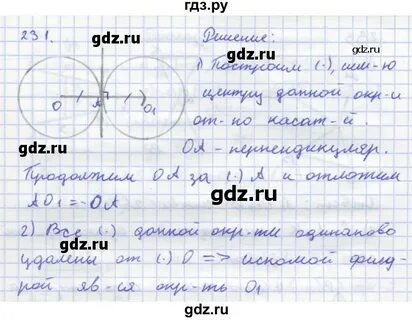 гдз.ру
231.
Решение:
1) Построим (·), сим-ю
центру данной окр-и
от-но касат-й.
O A O1
OA - перпендикуляр.
Продолжим OA за (·) A и отложим
AO1 = OA
2) Все (·) данной окр-ти одинаково
удалены от (·) O => искомой фигу-
рой яв-ся окр-ть O1
gdz.ru
gdz.ru
gdz.ru
gdz.ru
gdz.ru
gdz.ru
gdz.ru
gdz.ru